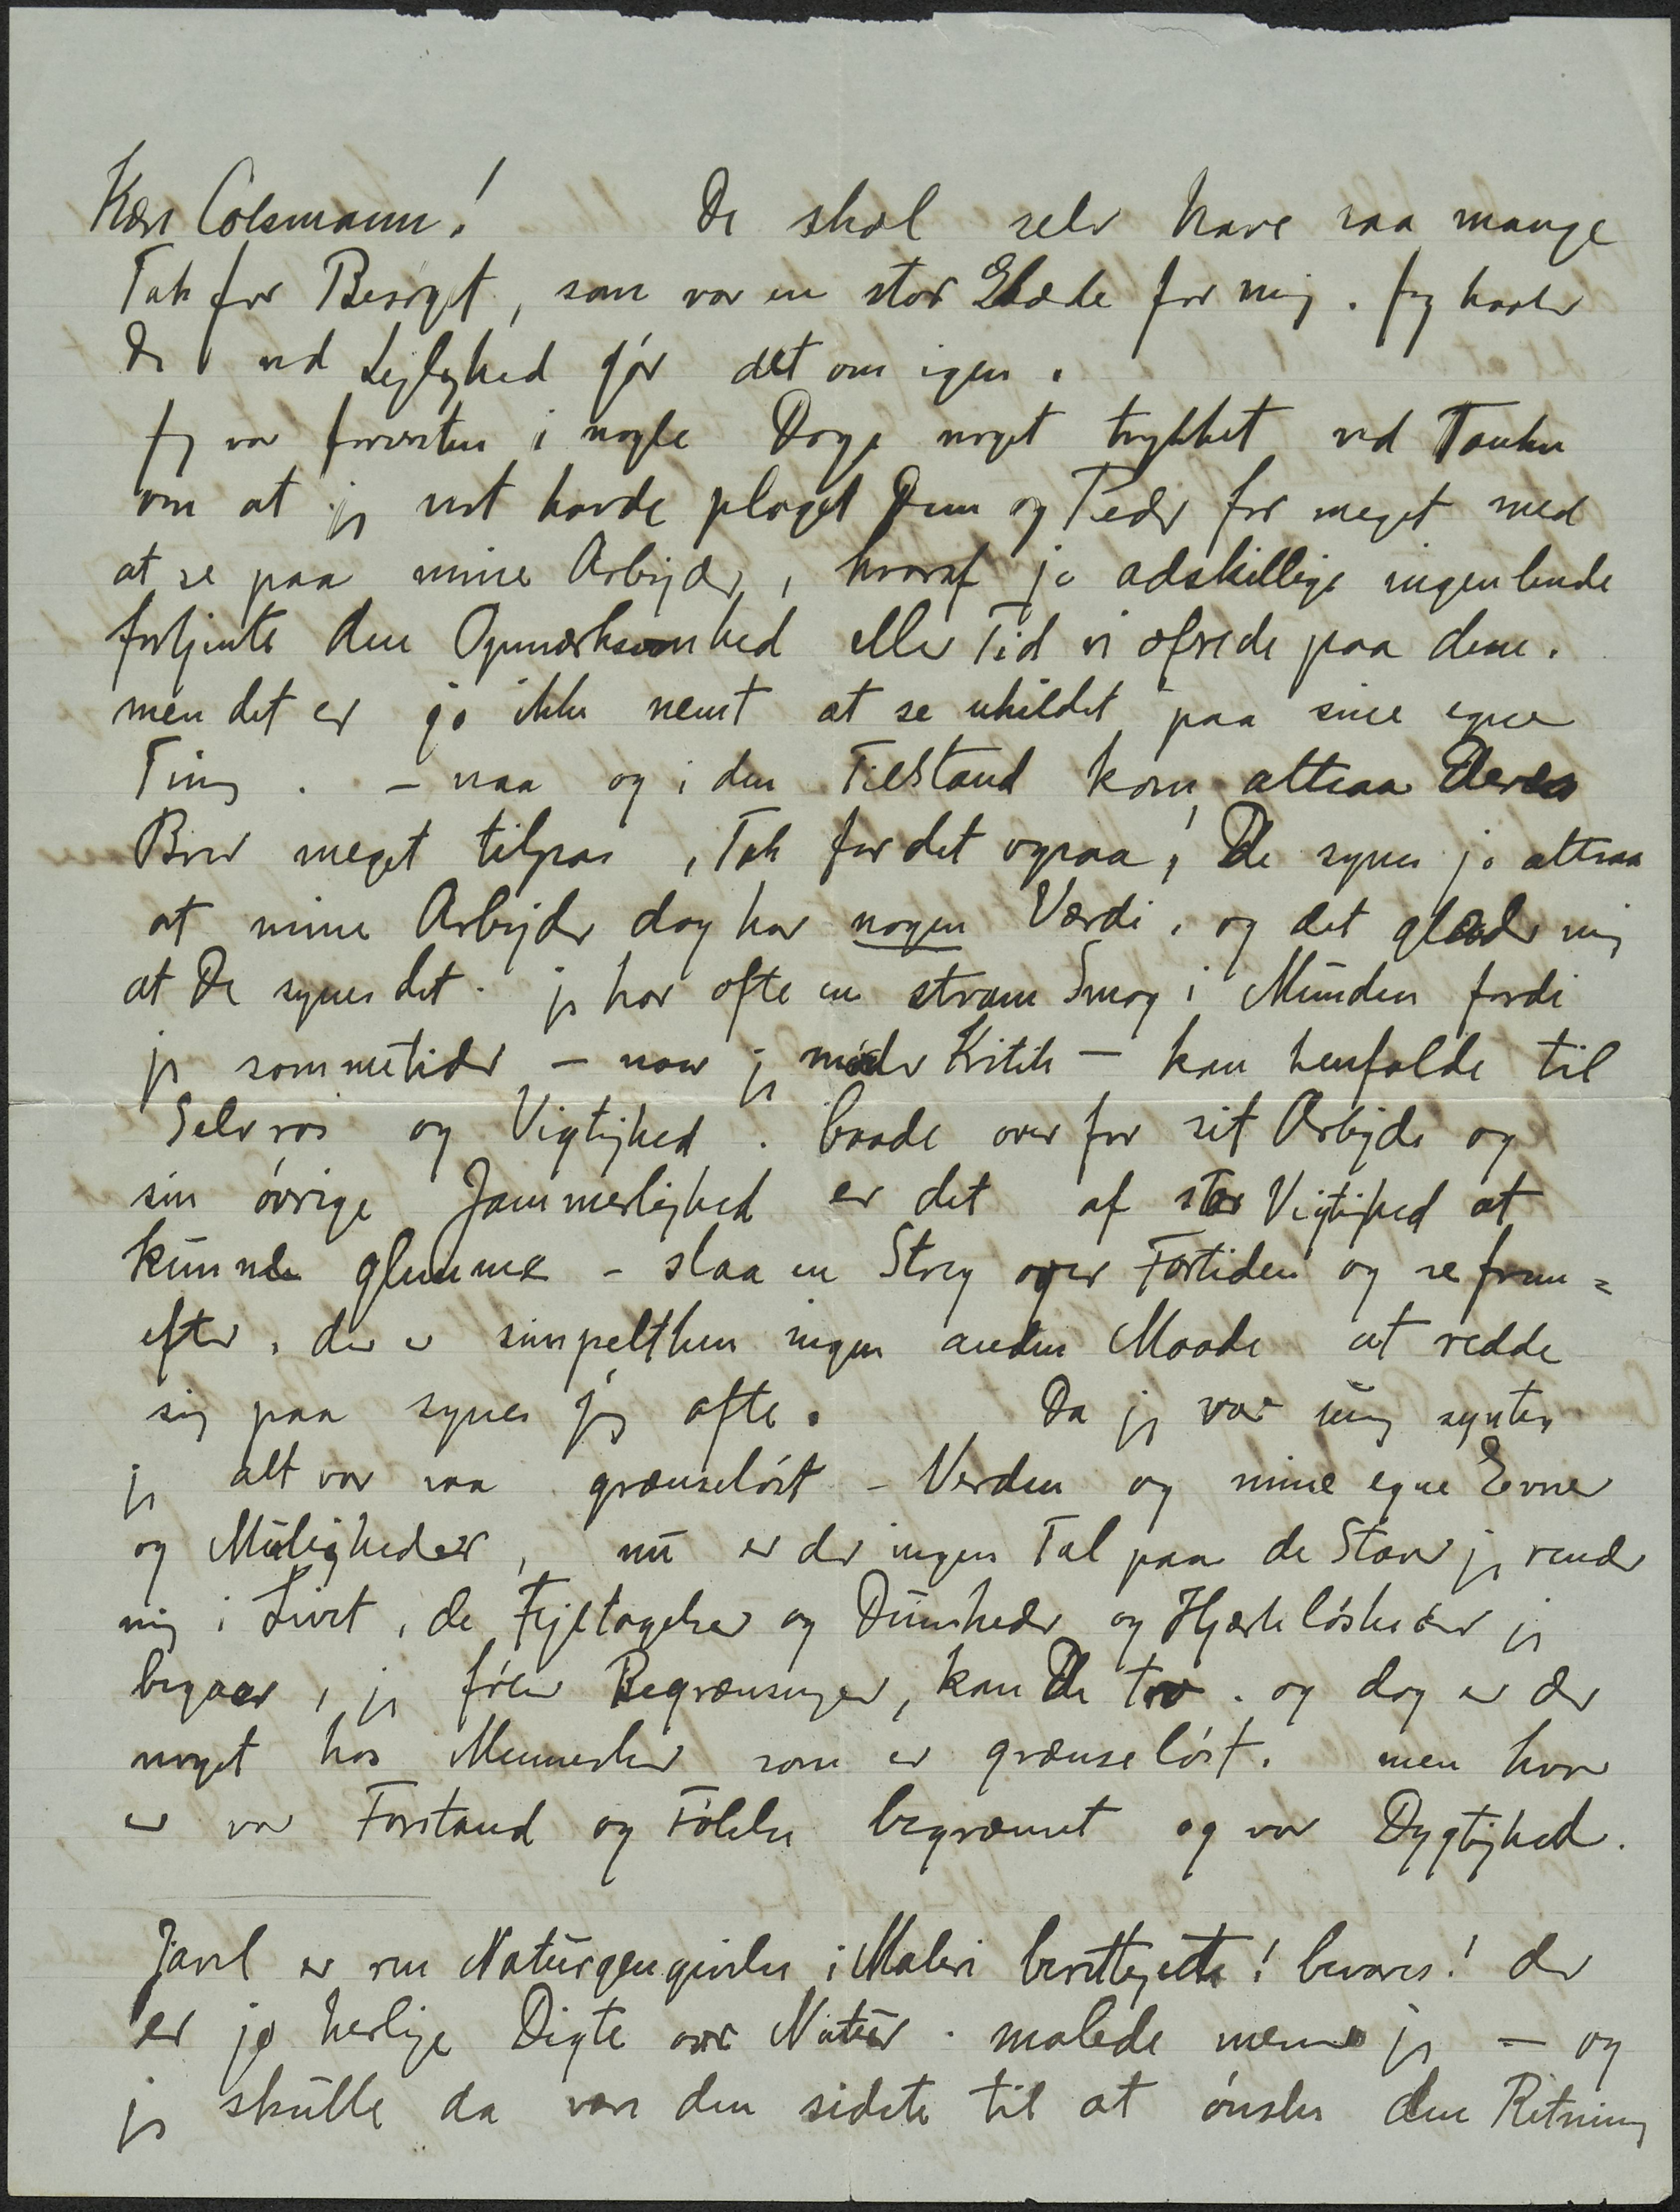 Kære Colsmann! De skal selv have saa mange
Tak for Besøget, som var en stor Glæde for mig. Jeg haaber
De ved Lejlighed gør det om igen.
Jeg var forresten i nogle Dage noget trykket ved Tanken
om at jeg vist havde plaget Dem og Peder for meget med
at se paa mine Arbejder, hvoraf jo adskillige ingenlunde
fortjente den Opmærksomhed eller Tid vi ofrede paa dem.
men det er jo ikke nemt at se uhildet paa sine egne
Ting. – naa og i den Tilstand kom altsaa Deres
Brev meget tilpas, Tak for det ogsaa, De synes jo altsaa
at mine Arbejder dog har nogen Værdi, og det glæder mig
at De synes det. jeg har ofte en stram Smag i Munden fordi
jeg sommetider – naar jeg møder Kritik – kan henfalde til
Selvros og Vigtighed. baade over for sit Arbejde og
sin øvrige Jammerlighed er det af stor Vigtighed at
kunne glemme – slaa en Streg over Fortiden og se frem=
efter, der er simpelthen ingen anden Maade at redde
sig paa synes jeg ofte. Da jeg var ung syntes
jeg alt var saa grænseløst – Verden og mine egne Evner
og Muligheder, nu er der ingen Tal paa de Stave jeg render
mig i Livet, de Fejltagelser og Dumheder og Hjærteløsheder jeg
begaaer, jeg føler Begrænsninger, kan De tro. og dog er der
noget hos Mennesker som er grænseløst. men hvor
er vor Forstand og Følelse begrænset og vor Dygtighed.
Javel er ren Naturgengivelse i Maleri berettigett! bevares! der
er jo herlige Digte over Natur. malede mener jeg – og
jeg skulle da være den sidste til at ønske den Retning